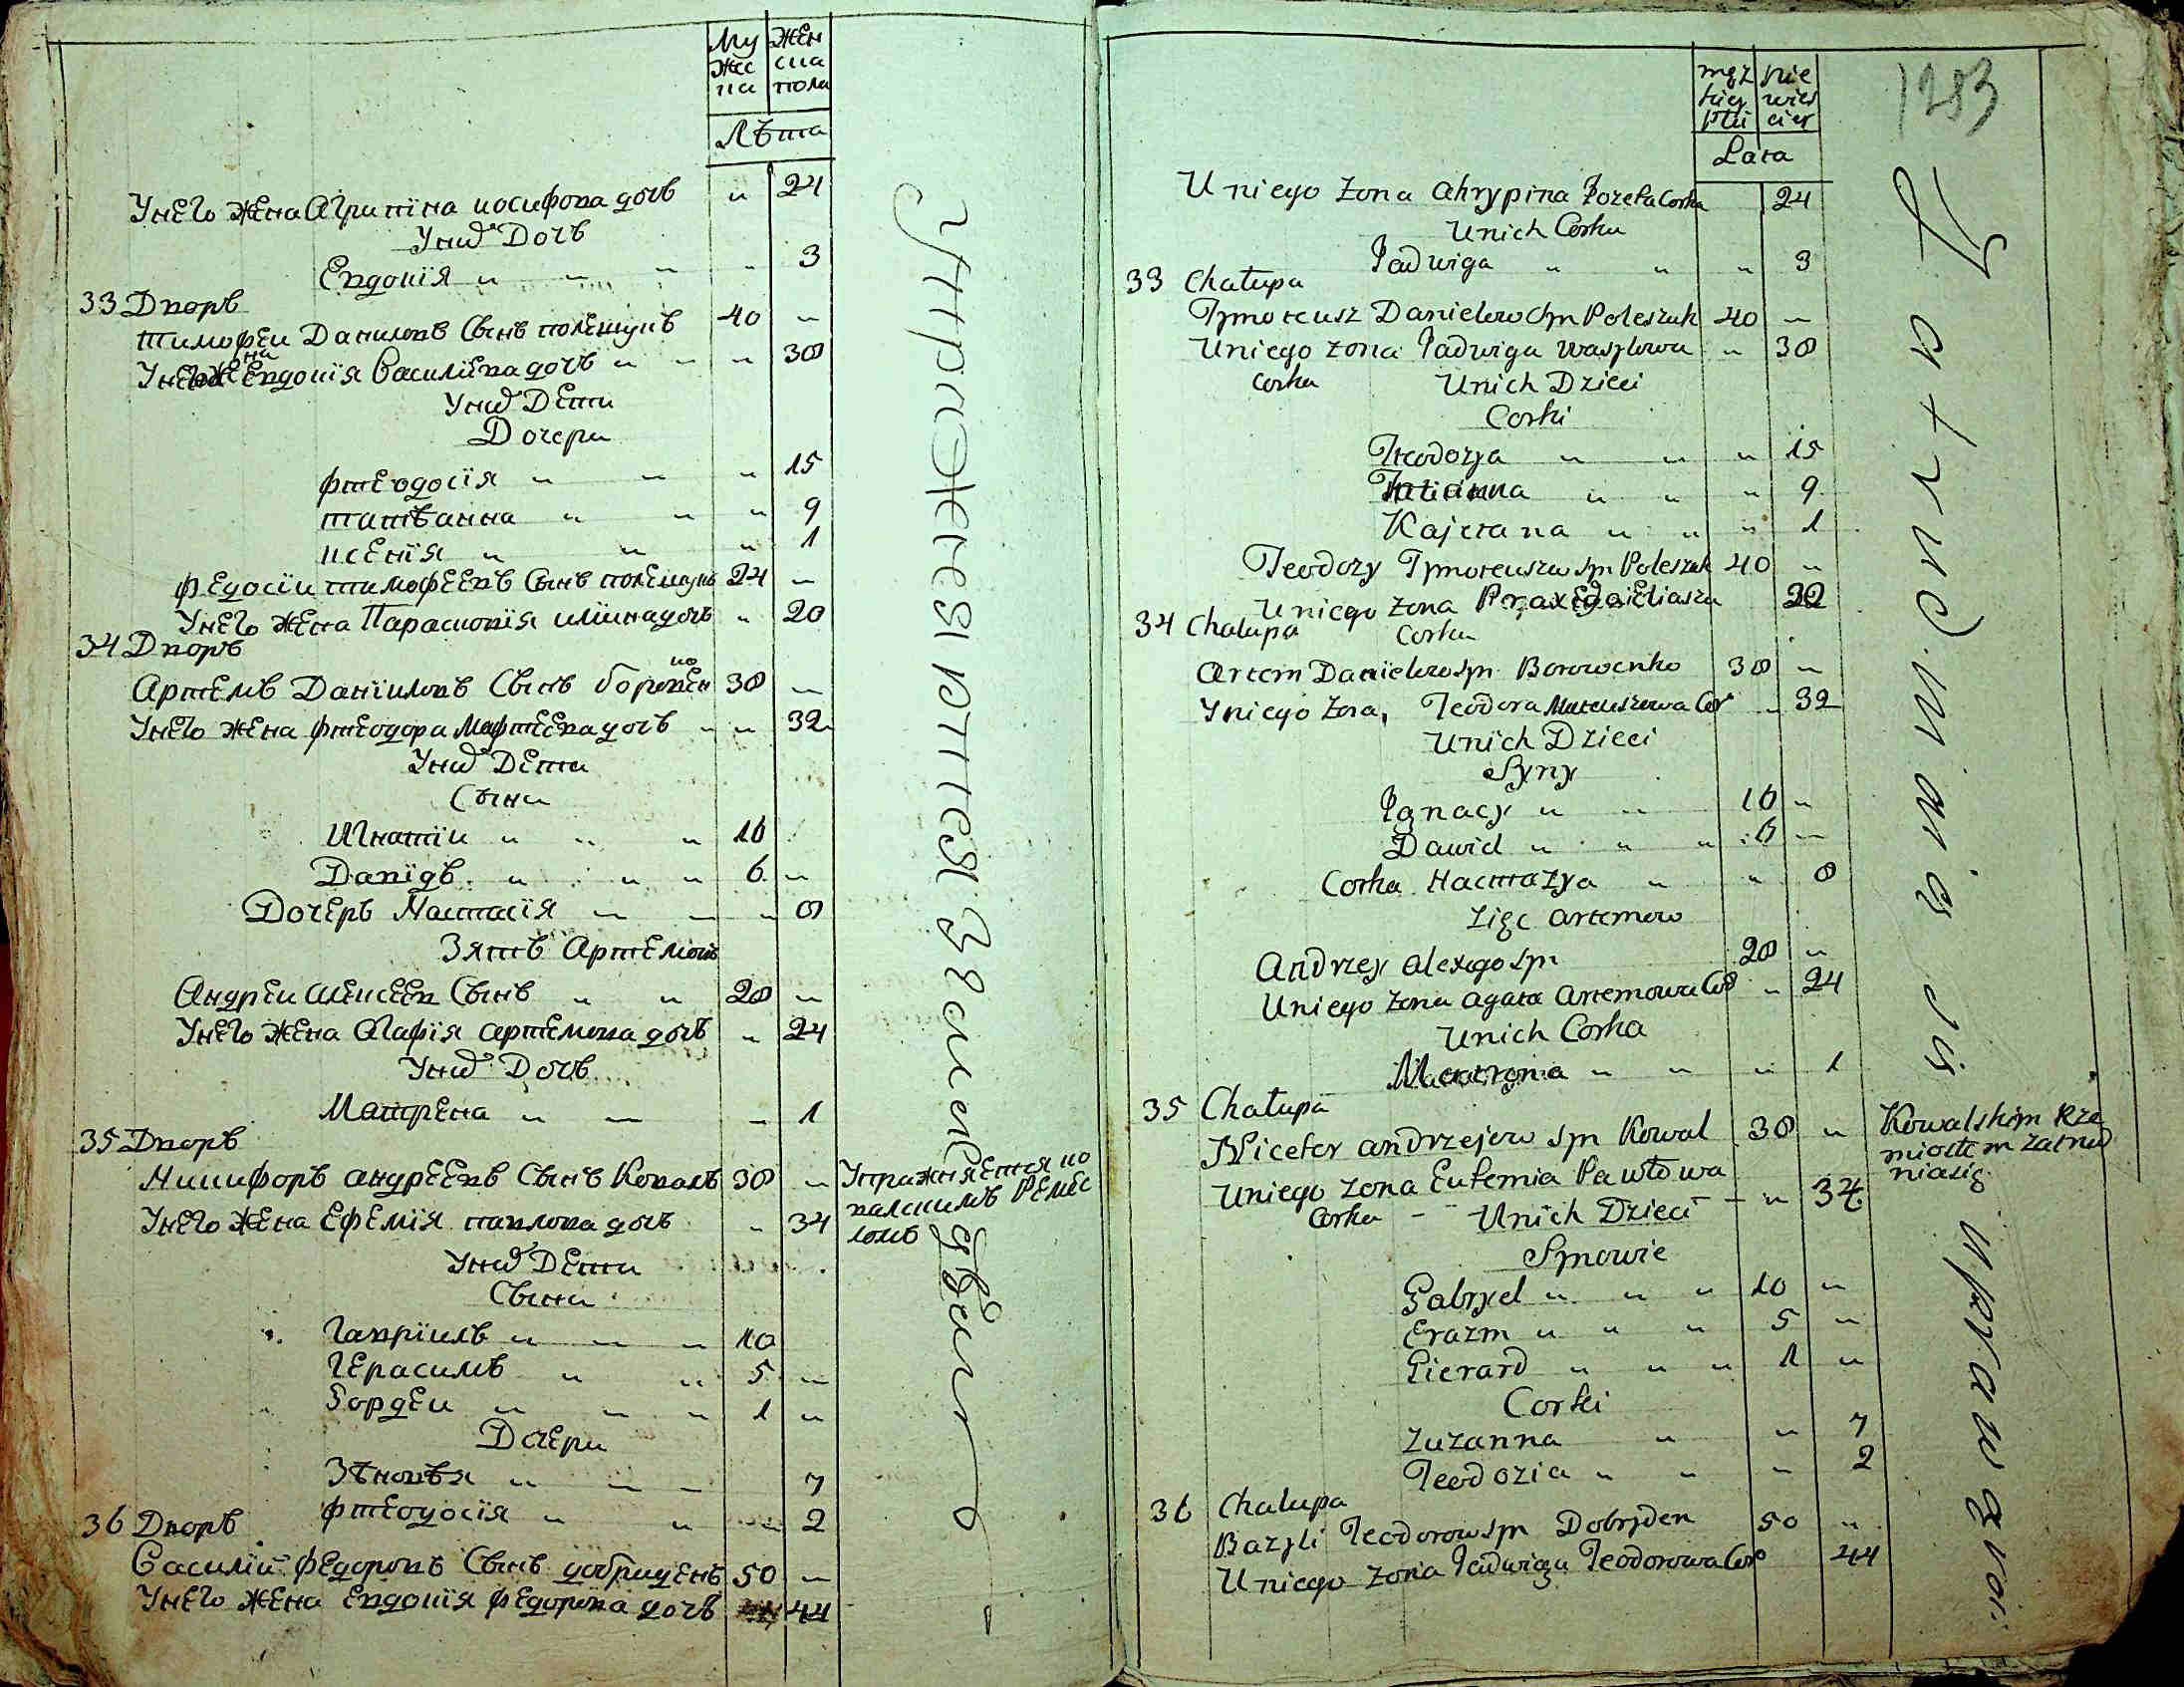 Му жес ка
жен ска пола
Лѣта
У него жена Агрипина иосифова дочь " 24
У них Дочь
Евдокїя " " " " 3
33 Дворъ
тимофеи Данилов Сынъ полещукъ 40 "
У него жена Евдокїя Василїева дочь " " " 38
У них Дети
Дочери
фтеодосїя " " " 15
татѣанна " " " 9
ксенїя " " " 1
федосїи тимофеевъ Сынъ полещукъ 24 "
У него жена Парасковїя илїина дочь " 20
34 Дворъ
Артемъ Данїиловъ Сынъ боровенко 38 "
У него жена фтеодора Мафтеева дочь " " 32
У них Дети
Сыни
Игнатїи " " " 16
Давїдъ " " " 6 "
Дочеръ Настасїя " " " 8
Зять Артемовъ
Андреи алексеев Сынъ " " 28 "
У него жена Агафїя артемова дочь " 24
У них Дочь
Матрена " " " 1
35 Дворъ
Никифоръ андреевъ Сынъ Коваль 38 "
У него жена Ефемїя павлова дочь " 34
У них Дети
Сыни
Гаврїилъ " " " 10
Герасимъ " " 5 "
Гордеи " " " 1 "
Дочери
Зѣновѣя " " " 7
фтеодосїя " " " 2
36 Дворъ
Василїй федоровъ Сынъ добридень 50 "
У него жена Евдокїя федорова дочь 44
Упражняется ковалскимъ Ремесломъ
Упражняются землед
męz kiey płci
nie wies ciey
Lata
1283
U niego żona Ahrypina Jozefa Corka 24
U nich Corka
Jadwiga " " " 3
33 Chałupa
Tymoteusz Danielow Syn Poleszuk 40 "
U niego żona Jadwiga Wasylowa " 38
corka U nich Dzieci
Corki
Theodozya " " " 15
Tatianna " " " 9
Kajetana " " " 1
Teodozy Tymoteuszow syn Poleszuk 40 "
U niego żona Praxeda Eliasza
corka
34 Chałupa
Artem Danielow Syn Borowenko 38 "
U niego żona, Teodora Mateuszowa Cor " 32
U nich Dzieci
Syny
Ignacy " " 16 "
Dawid " " " 6 "
Corka Настаzya " " 8
Zięc Artemow
Andrzey Alexego Syn 28 "
U niego żona Agata Artemowa Cor " 24
U nich Corka
Matrona " " " 1
35 Chałupa
Nicefor Andrzejow Syn Kowal 38 "
U niego żona Eufemia Pawłowa
Corka - - U nich Dzieci - " 34
Synowie
Gabryel " " " 10 "
Erazm " " " 5 "
Gierard " " " 1 "
Corki
Zuzanna " " 7
Teodozia " " " 2
36 Chałupa
Bazyli Teodorow Syn Dobryden 50 "
U niego żona Jadwiga Teodorowa Cor 44
Kowalskim Rze
miosłem zatrud
nia się